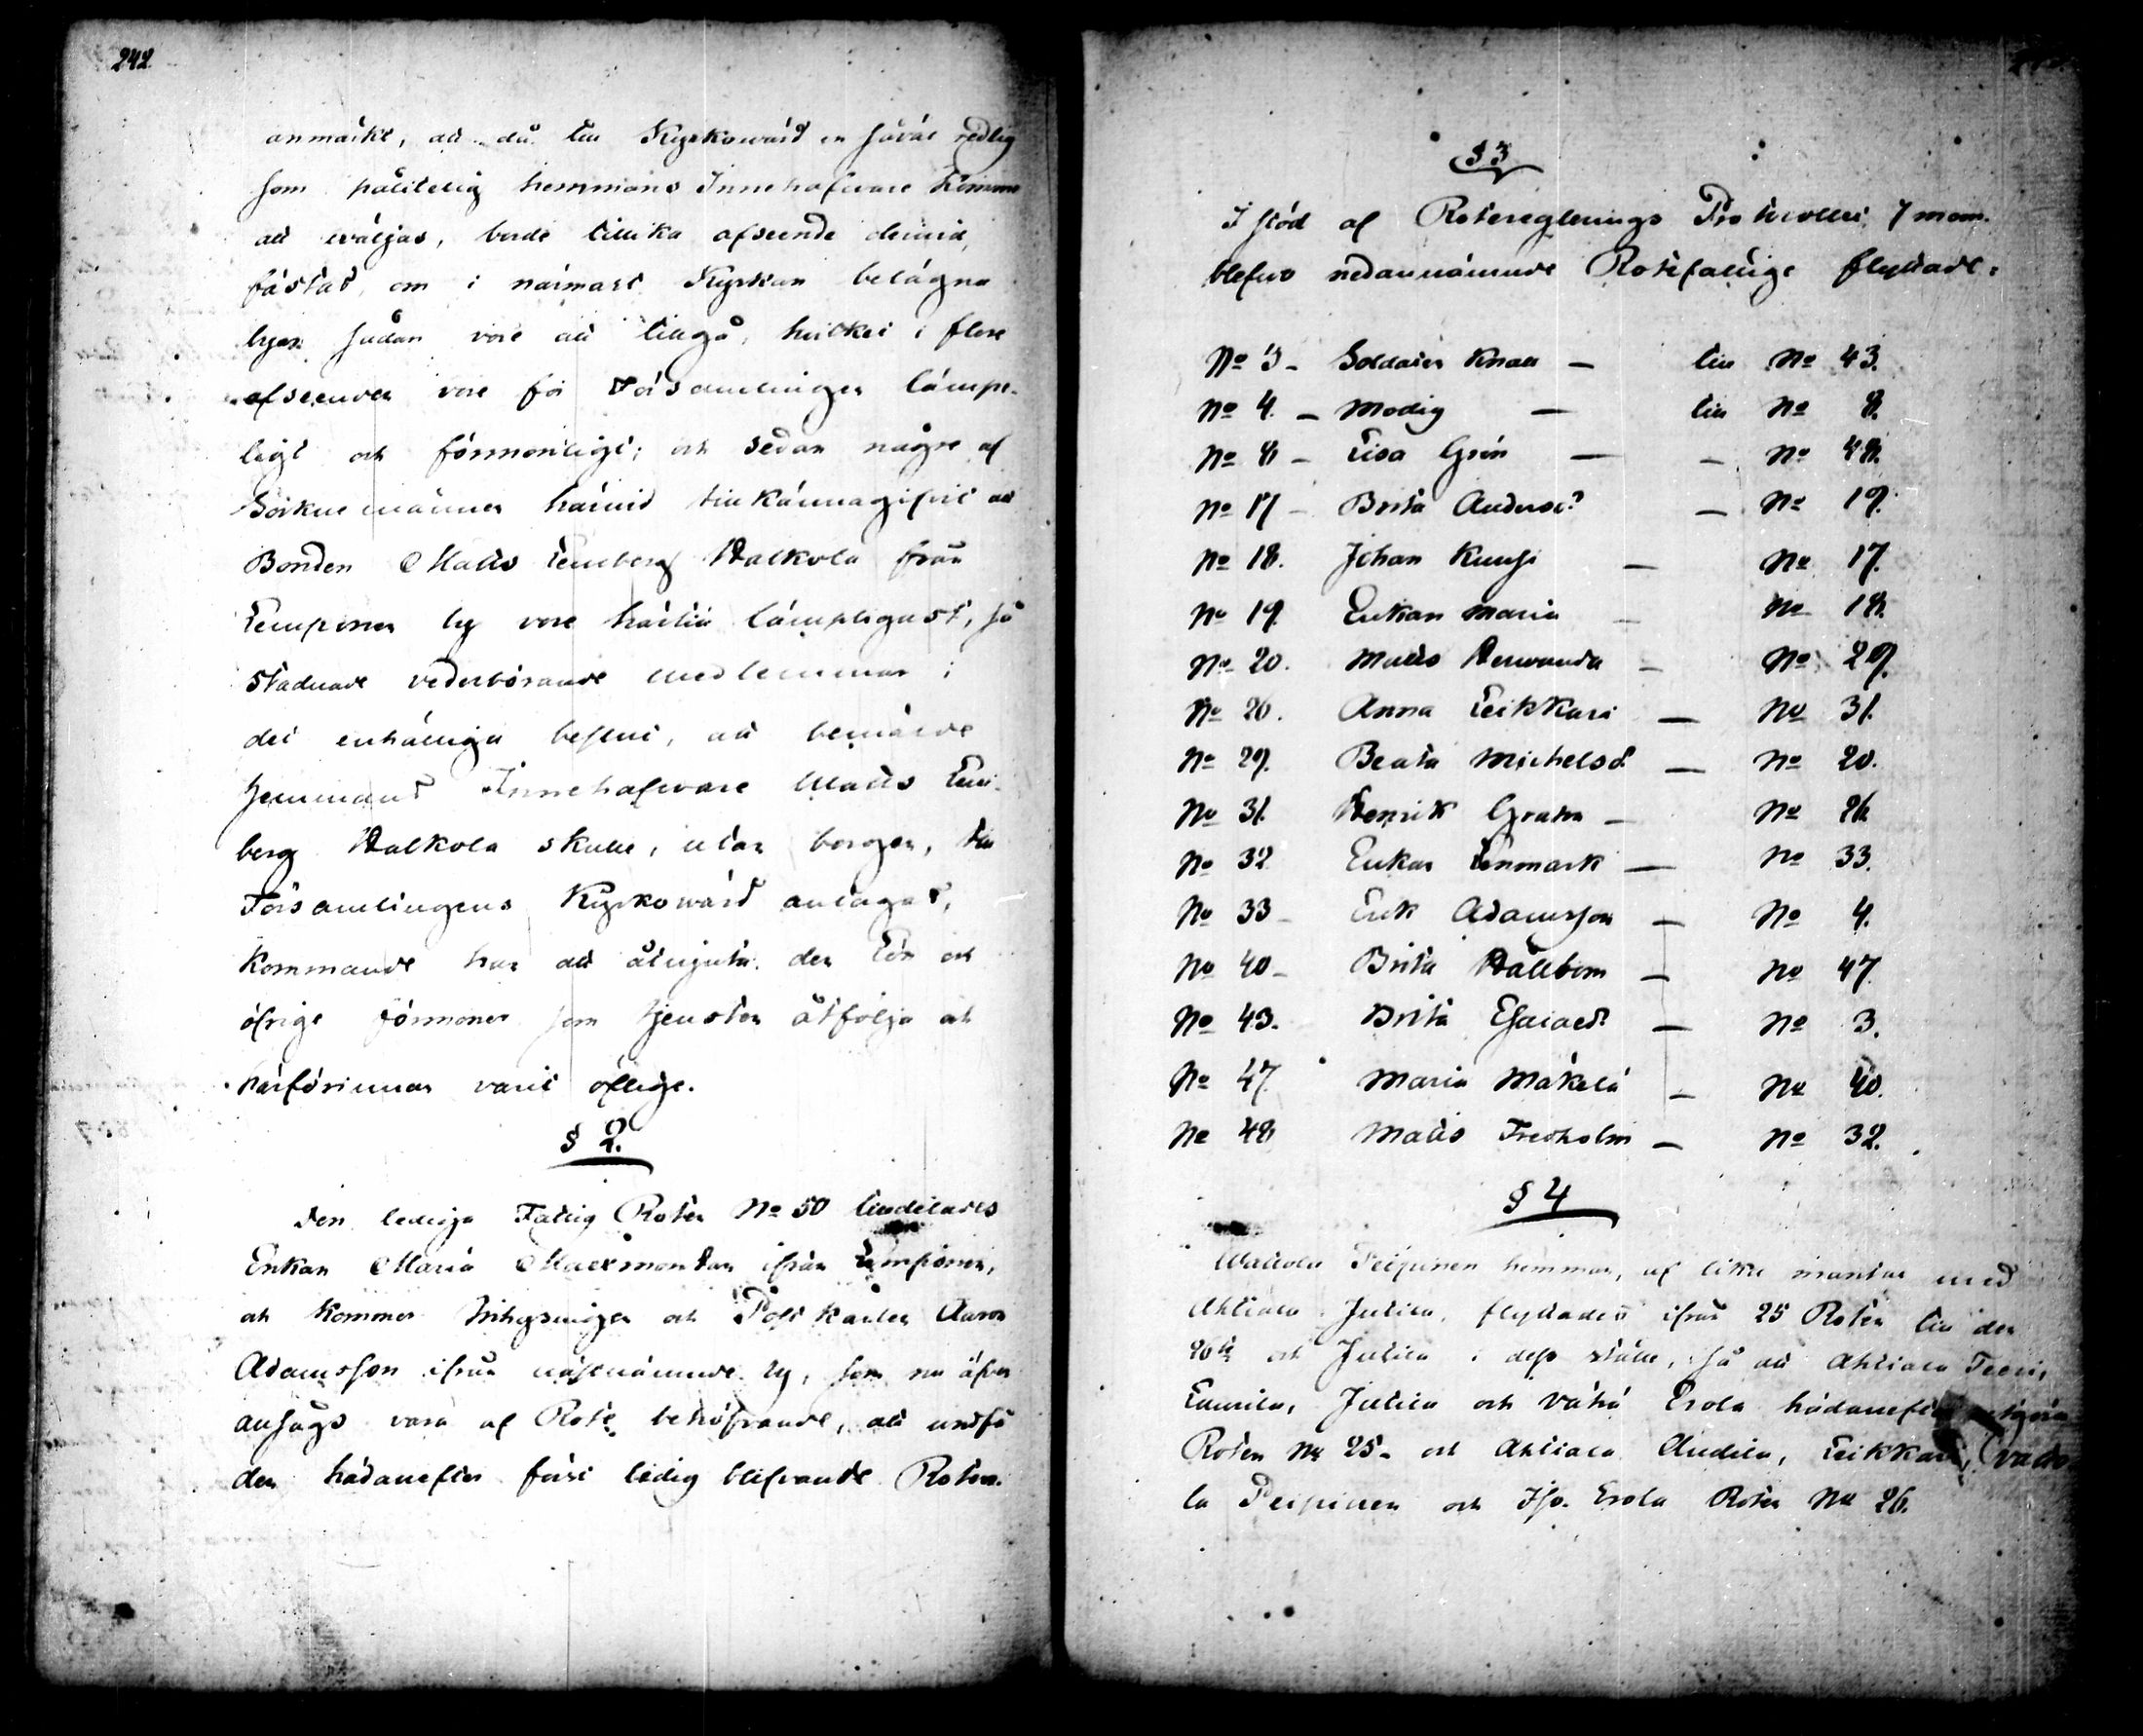 242
anmärkt, att då till Kyrkowärd en såväl redlig
som pålitelig hemmans Innehafware komme
att wäljas, borde tillika afseende dervid
fästas, om i närmast Kyrkan belägna
byar sådan vore att tillgå, hvilket i flere
afseenden vore för Församlingen lämpe-
ligt och förmonligt; och sedan någre af
Sockne männer härvid tillkännagifvit att
Bonden Matts Lemberg Halkola från
Lempoinen by vore härtill lämpligast, så
stadnade vederbörande medlemmar i
det enhälliga beslut, att bemälde
hemmans Innehafware Matts Lem-
berg Halkola skulle, utan borgen, till
Församlingens Kyrkowärd antagas,
kommande han att åtnjuta den Lön och
öfrige förmoner som tjensten åtfölja och
härförinnan varit öflige.
§ 2.
Den lediga Fattig Roten No 50 tilldelades
Enkan Maria Maexmontan ifrån Lempoinen,
och kommer Inhysningen och Post Karlen Aaron
Adamsson ifrån nästnämnde by, som nu äfven
ansågs vara af Rote behöfvande, att undfå
den hädanefter först ledig blifvande Roten.
§ 3
I stöd af Rotereglerings Protocollet 7 mom.
blefwo nedannämnde Rotefattige flyttade:
No 3 - Soldaten Knall — till No 43.
No 4. — Modig — till No 8.
No 8 — Lisa Grön — — No 48.
No 17 — Brita Andersd. — No 19.
No 18. Johan Kuusi — No 17.
No 19. Enkan Maria — No 18.
No 20. Matts Herwanda — No 29.
No 26. Anna Leikkari — No 31.
No 29. Beata Michelsd. — No 20.
No 31. Henrik Grahn — No 26.
No 32 Enkan Lenmark — No 33.
No 33 — Erik Adamsson — No 4.
No 40 — Brita Hällbom — No 47
No 43. Brita Esaiaed. — No 3.
No 47. Maria Mäkelä — No 40.
No 48 Matts Fredholm — No 32.
§ 4
Peipinen hemman, af lika mantal med
Ahtiala Jutila, flyttades ifrån 25 Roten till den
26te och Jutila i dess ställe, så att Ahtiala Teeri,
Laurila, Jutila och Vähä Erola hädanefter utgöra
Roten No 25 - och Ahtiala Anttila, Leikkari,
la Peipinen och Iso Erola Roten No 26.